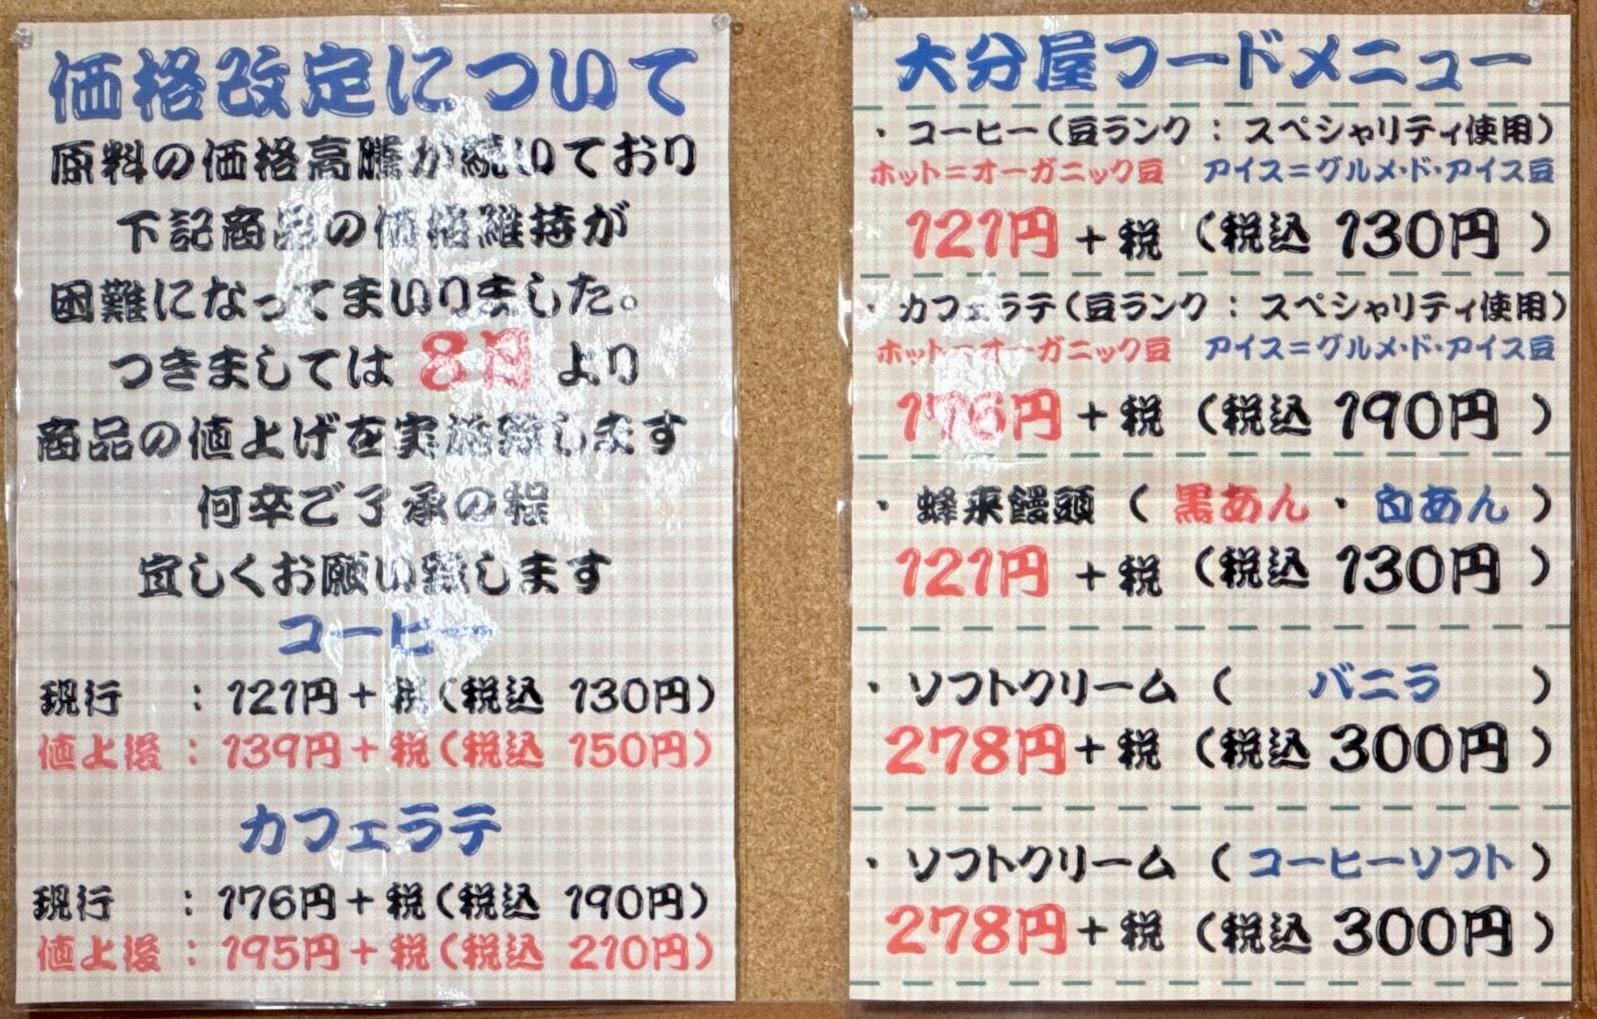 価格改定について
原料の価格高騰が続いており
下記商品の価格維持が
困難になってまいりました。
つきましては 8月 より
商品の値上げを実施致します
何卒ご了承の程
宜しくお願い致します
コーヒー
現行 : 121円+税(税込 130円)
値上後 : 139円+税(税込 150円)
カフェラテ
現行 : 176円+税(税込 190円)
値上後 : 195円+税(税込 210円)
大分屋フードメニュー
・コーヒー(豆ランク : スペシャリティ使用)
ホット=オーガニック豆 アイス=グルメ・ド・アイス豆
121円+税 (税込 130円 )
・カフェラテ(豆ランク : スペシャリティ使用)
ホット=オーガニック豆 アイス=グルメ・ド・アイス豆
176円+税 (税込 190円 )
・蜂来饅頭 ( 黒あん ・ 白あん )
121円+税 (税込 130円 )
・ソフトクリーム ( バニラ )
278円+税 (税込 300円 )
・ソフトクリーム ( コーヒーソフト )
278円+税 (税込 300円 )